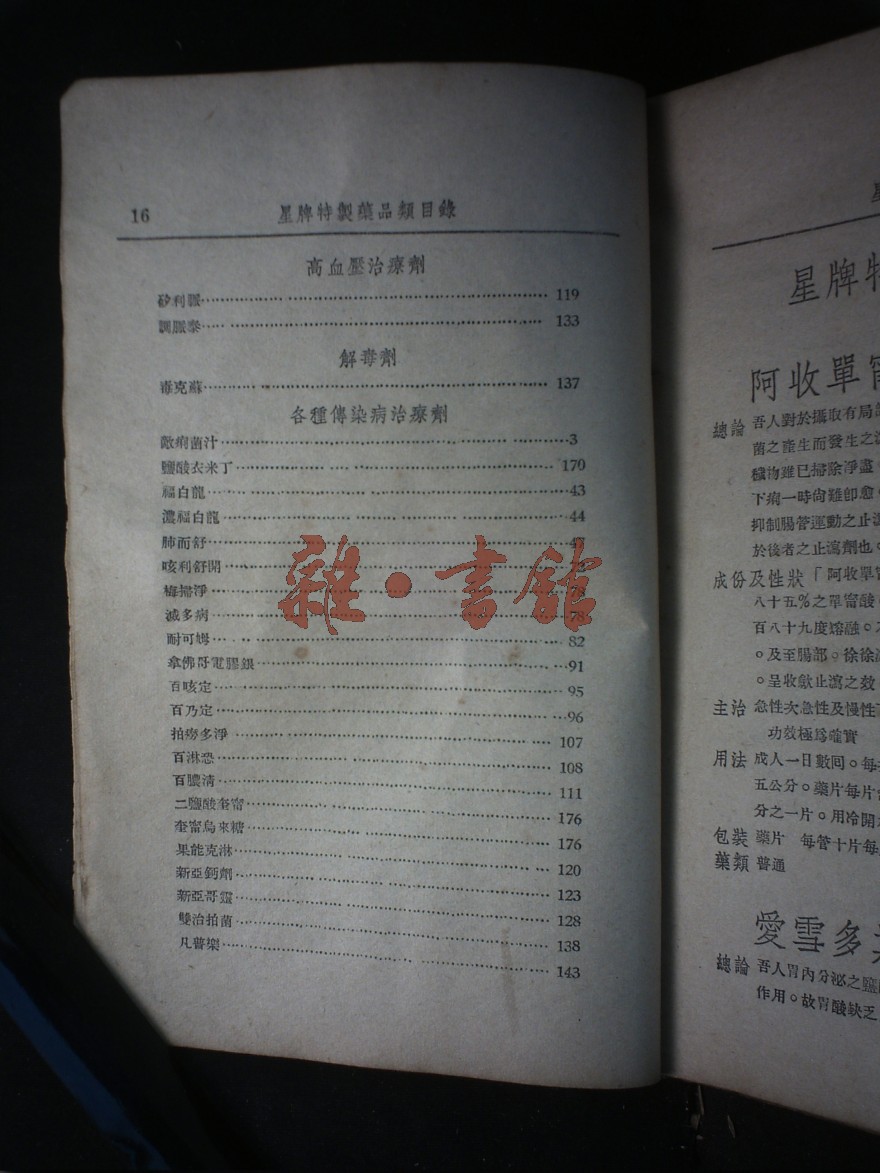 16 星牌特製藥品類目錄
高血壓治療劑
矽利賑 119
調脈泰 133
解毒劑
毒克蘇 137
各種傳染病治療劑
敵痢菌汁 3
鹽酸衣米丁 170
福白龍 43
濃福白龍 44
肺而舒 47
咳利舒開
梅掃淨 78
滅多病 78
耐可姆 82
拿佛哥電膠銀 91
百咳定 95
百乃定 96
拍瘧多淨 107
百淋恐 108
百膿清 111
二鹽酸奎甯 176
奎甯烏來糖 176
果能克淋 120
新亞鈣劑 123
新亞哥靈 128
雙治拍菌 138
凡普樂 143
雜·書館
星牌特
阿收單甯
總論 吾人對於攝取有局
菌之產生而發生之
穢物雖已掃除淨盡
下痢一時尚難即愈
抑制腸管運動之止瀉
於後者之止瀉劑也。
成份及性狀「阿收單甯
八十五%之單甯酸
百八十九度熔融。
。及至腸部。徐徐
。呈收歛止瀉之效
主治 急性次急性及慢性
功效極爲確實
用法 成人一日數回。每
五公分。藥片每片
分之一片。用冷開
包裝 藥片 每管十片每
藥類 普通
愛雪多
總論 吾人胃內分泌之鹽
作用。故胃酸缺乏